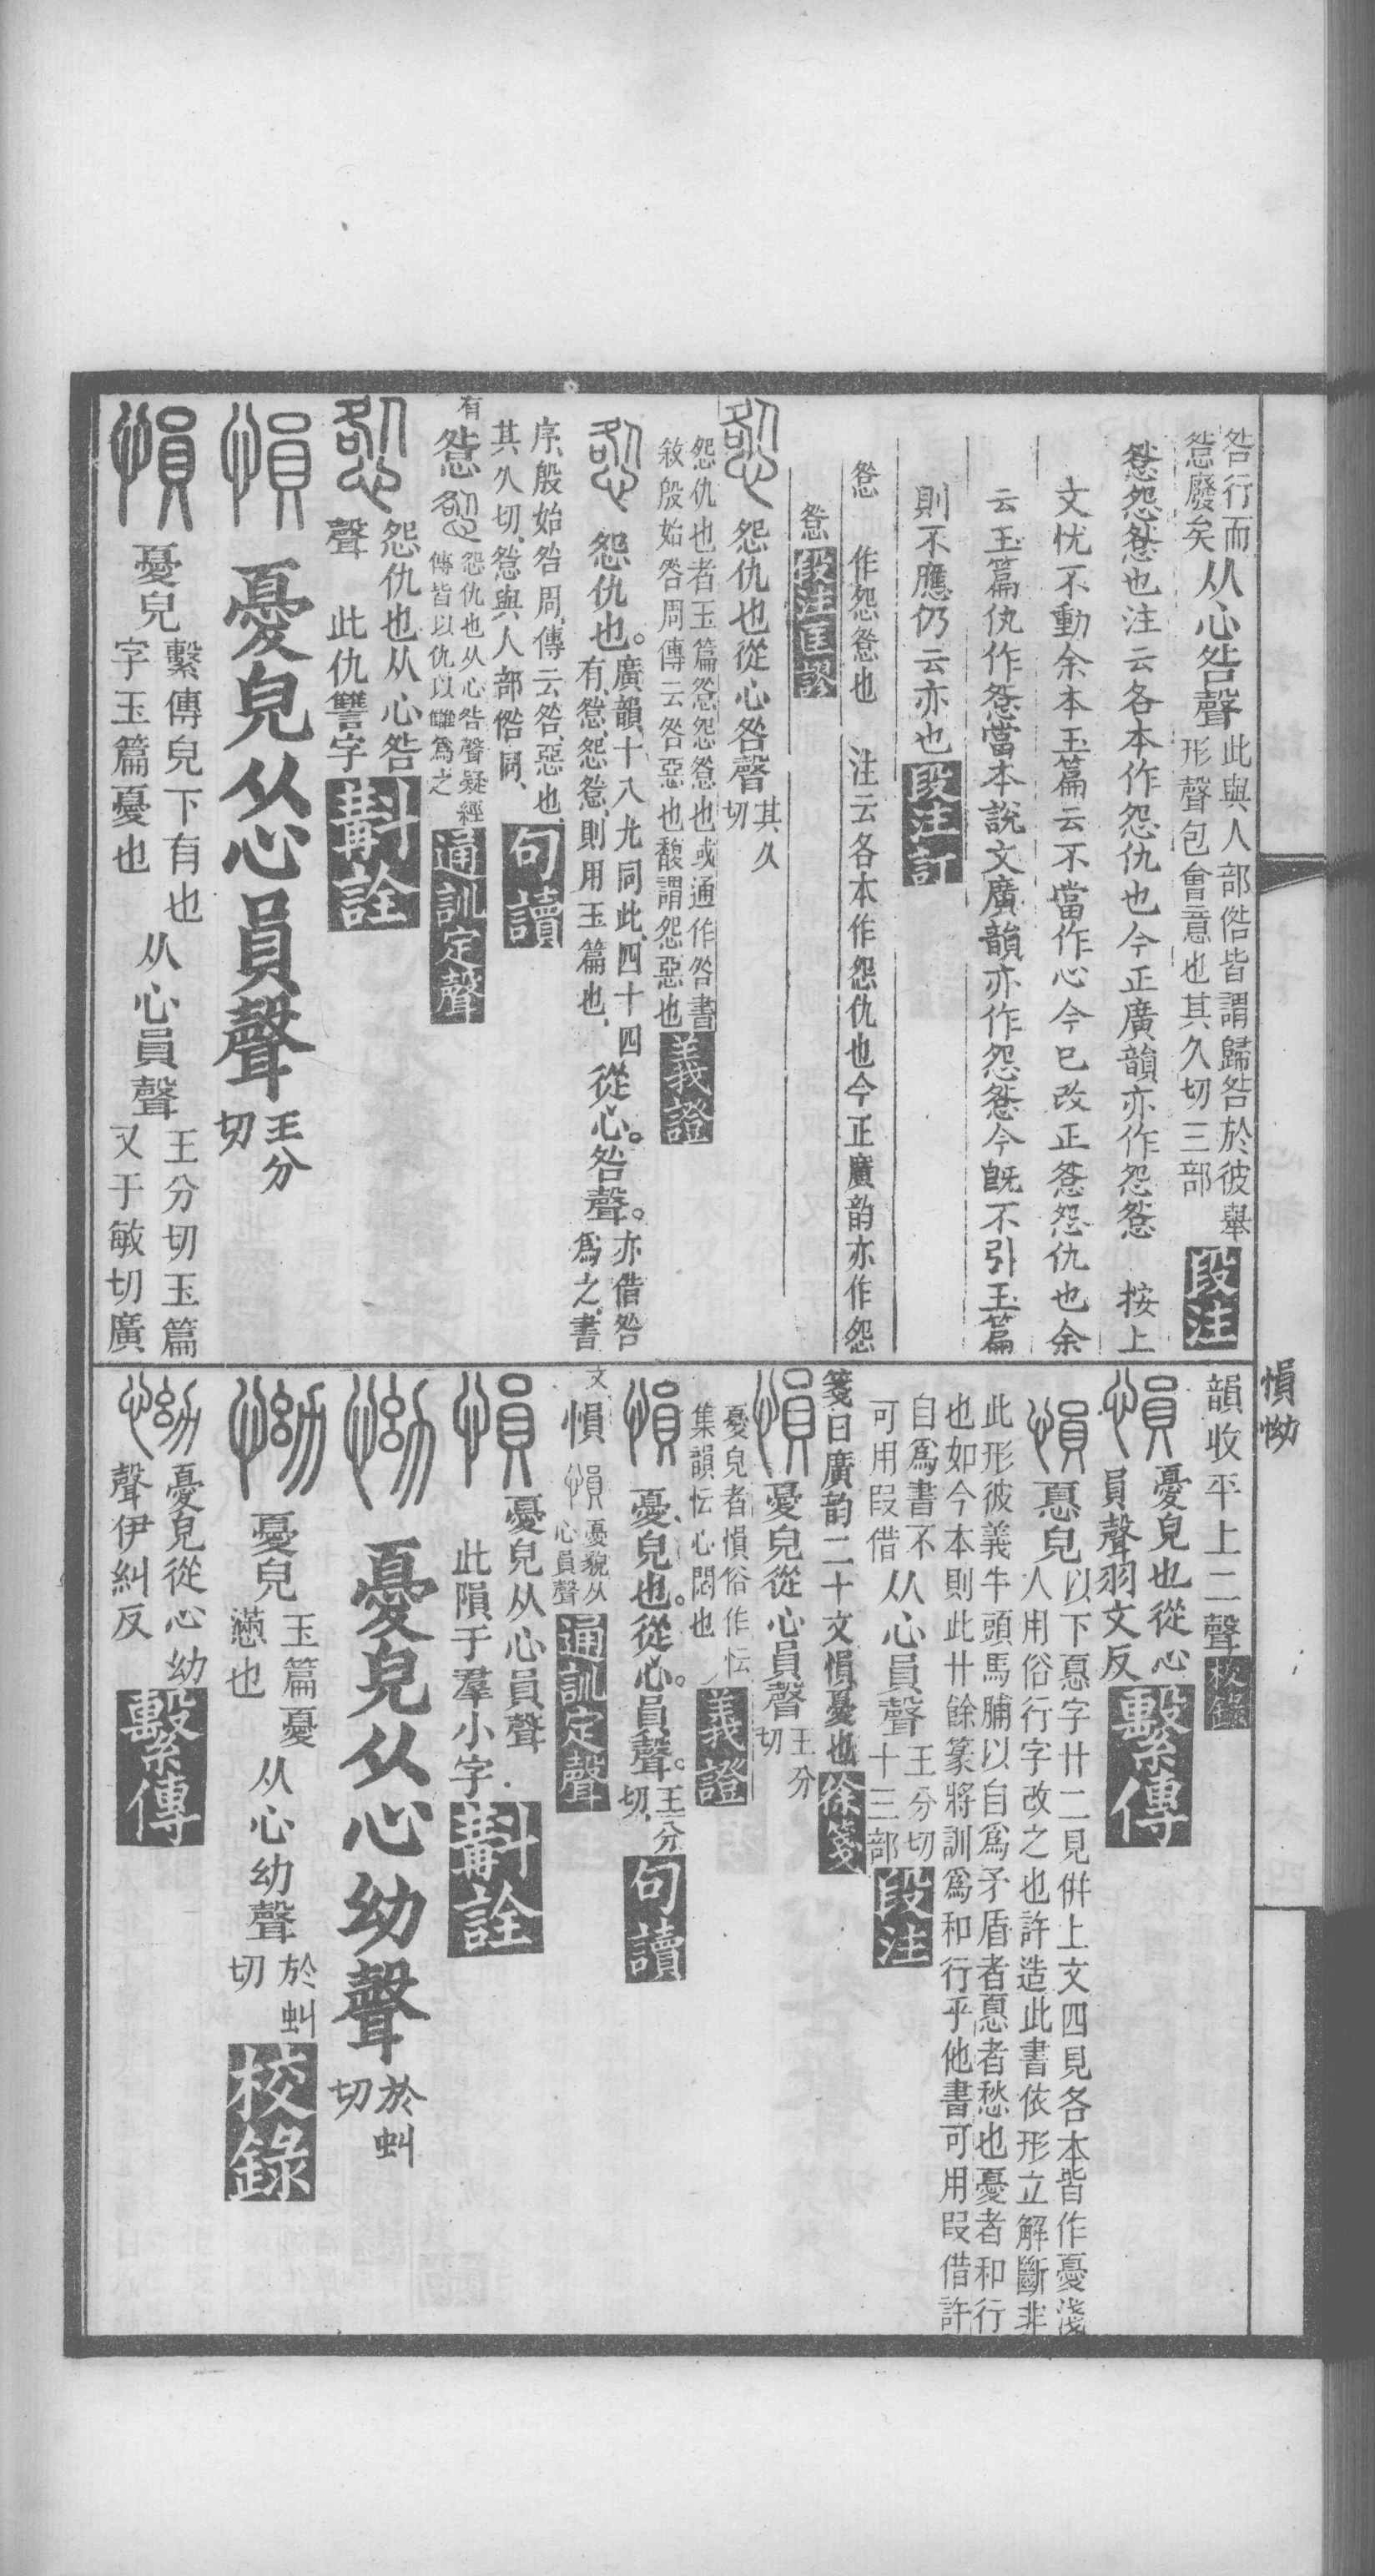 咎行而
惄廢矣从心咎聲此與人部俗皆謂歸咎於彼舉
形聲包會意也其久切三部段注
慾怨慾也注云各本作怨仇也今正廣韻亦作怨慾 按上
文忧不動余本玉篇云不當作心今已改正慾怨仇也余
云玉篇仇作慾當本說文廣韻亦作怨慾今旣不引玉篇
則不應仍云亦也段注訂
作怨慾也 注云各本作怨仇也今正廣韵亦作怨
段注匡謬
怨仇也從心咎聲其久切
怨仇也者玉篇慾怨慾也或通作咎書
敘殷始咎周傳云咎惡也馥謂怨惡也義證
怨仇也。廣韻、十八尤同此、四十四
有、慾、怨慾、則用玉篇也、從心。咎聲。亦借咎
爲之、書
序、殷始咎周、傳云、咎、惡也、
其久切、慾與人部俗同、句讀
有
怨仇也从心咎聲疑經
傳皆以仇以讎爲之通訓定聲
怨仇也从心咎
聲 此仇讐字斠詮
愪憂皃从心員聲王分切
愪憂皃繫傳皃下有也
字玉篇憂也从心員聲王分切玉篇
又于敏切廣
愪怮
韻收平上二聲校錄
愪憂皃也從心
員聲羽文反繫傳
愪惪皃以下惪字廿二見併上文四見各本皆作憂淺
人用俗行字改之也許造此書依形立解斷非
此形彼義牛頭馬脯以自爲矛盾者惪者愁也憂者和行
也如今本則此廿餘篆將訓爲和行乎他書可用叚借許
自爲書不
可用叚借从心員聲王分切
十三部段注
箋曰廣韵二十文愪憂也徐箋
愪憂皃從心員聲王分切
憂皃者愪俗作忶
集韻忶心悶也義證
愪憂、皃也。從心。員聲。王分切、句讀
文
愪愪憂貌从
心員聲通訓定聲
愪憂皃从心員聲
此隕于羣小字斠詮
怮憂皃从心幼聲於虯切
怮憂皃玉篇憂
懣也从心幼聲於虯切校錄
怮憂皃從心幼
聲伊糾反繫傳